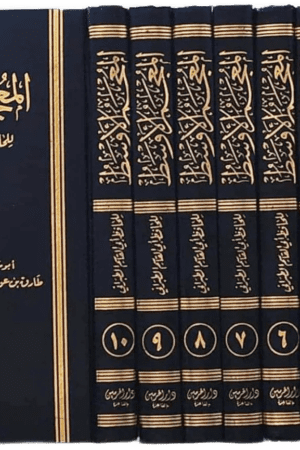 المعجم الأوسط
للحافظ أبي القاسم الطبراني
٦
دار الحرمين
بالقاهرة
المعجم الأوسط
للحافظ أبي القاسم الطبراني
٧
دار الحرمين
بالقاهرة
المعجم الأوسط
للحافظ أبي القاسم الطبراني
٨
دار الحرمين
بالقاهرة
المعجم الأوسط
للحافظ أبي القاسم الطبراني
٩
دار الحرمين
بالقاهرة
المعجم الأوسط
للحافظ أبي القاسم الطبراني
١٠
دار الحرمين
بالقاهرة
طارق بن عو